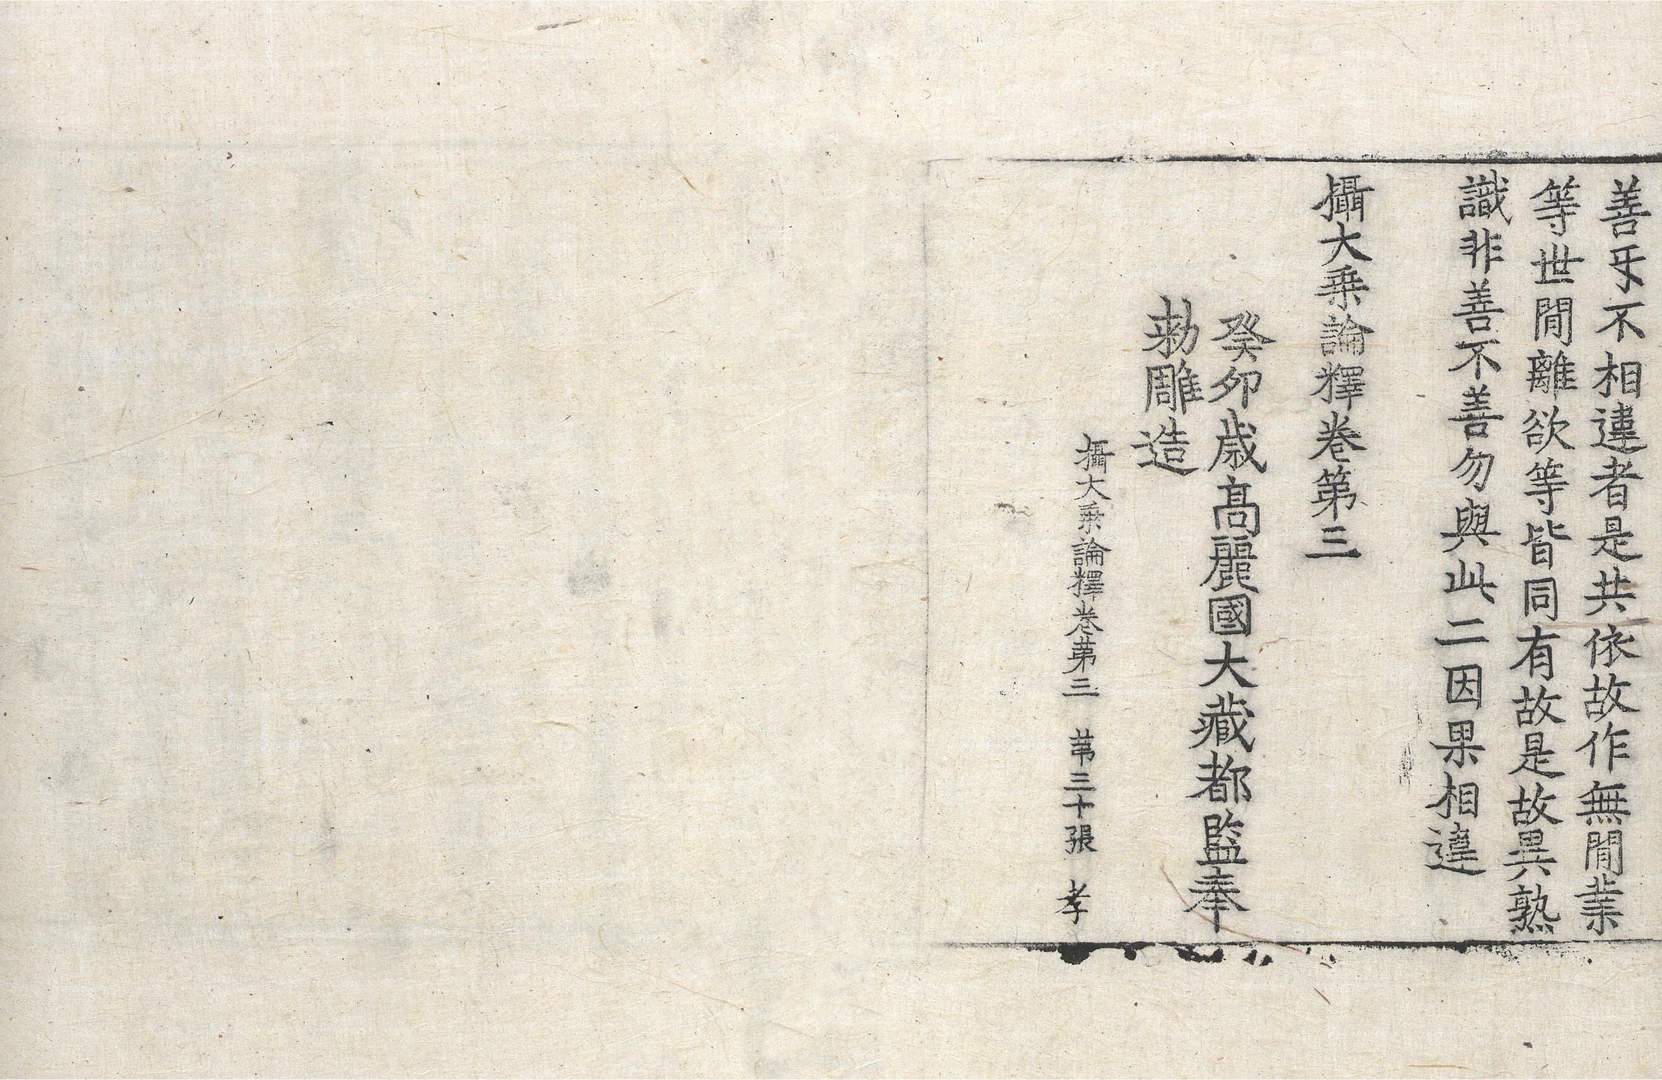 善乎不相違者是共依故作無間業
等世間離欲等皆同有故是故異熟
識非善不善勿與此二因果相違
攝大乘論釋卷第三
癸卯歲高麗國大藏都監奉
勑雕造
攝大乘論釋卷第三 第三十張 孝